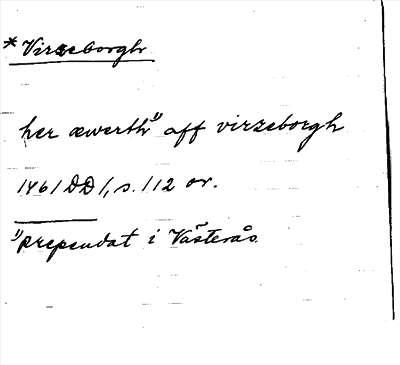 * Virzeborgh
her æwerth¹⁾ aff virzeborgh
1461 DD 1, s. 112 or.
¹⁾prependat i Västerås